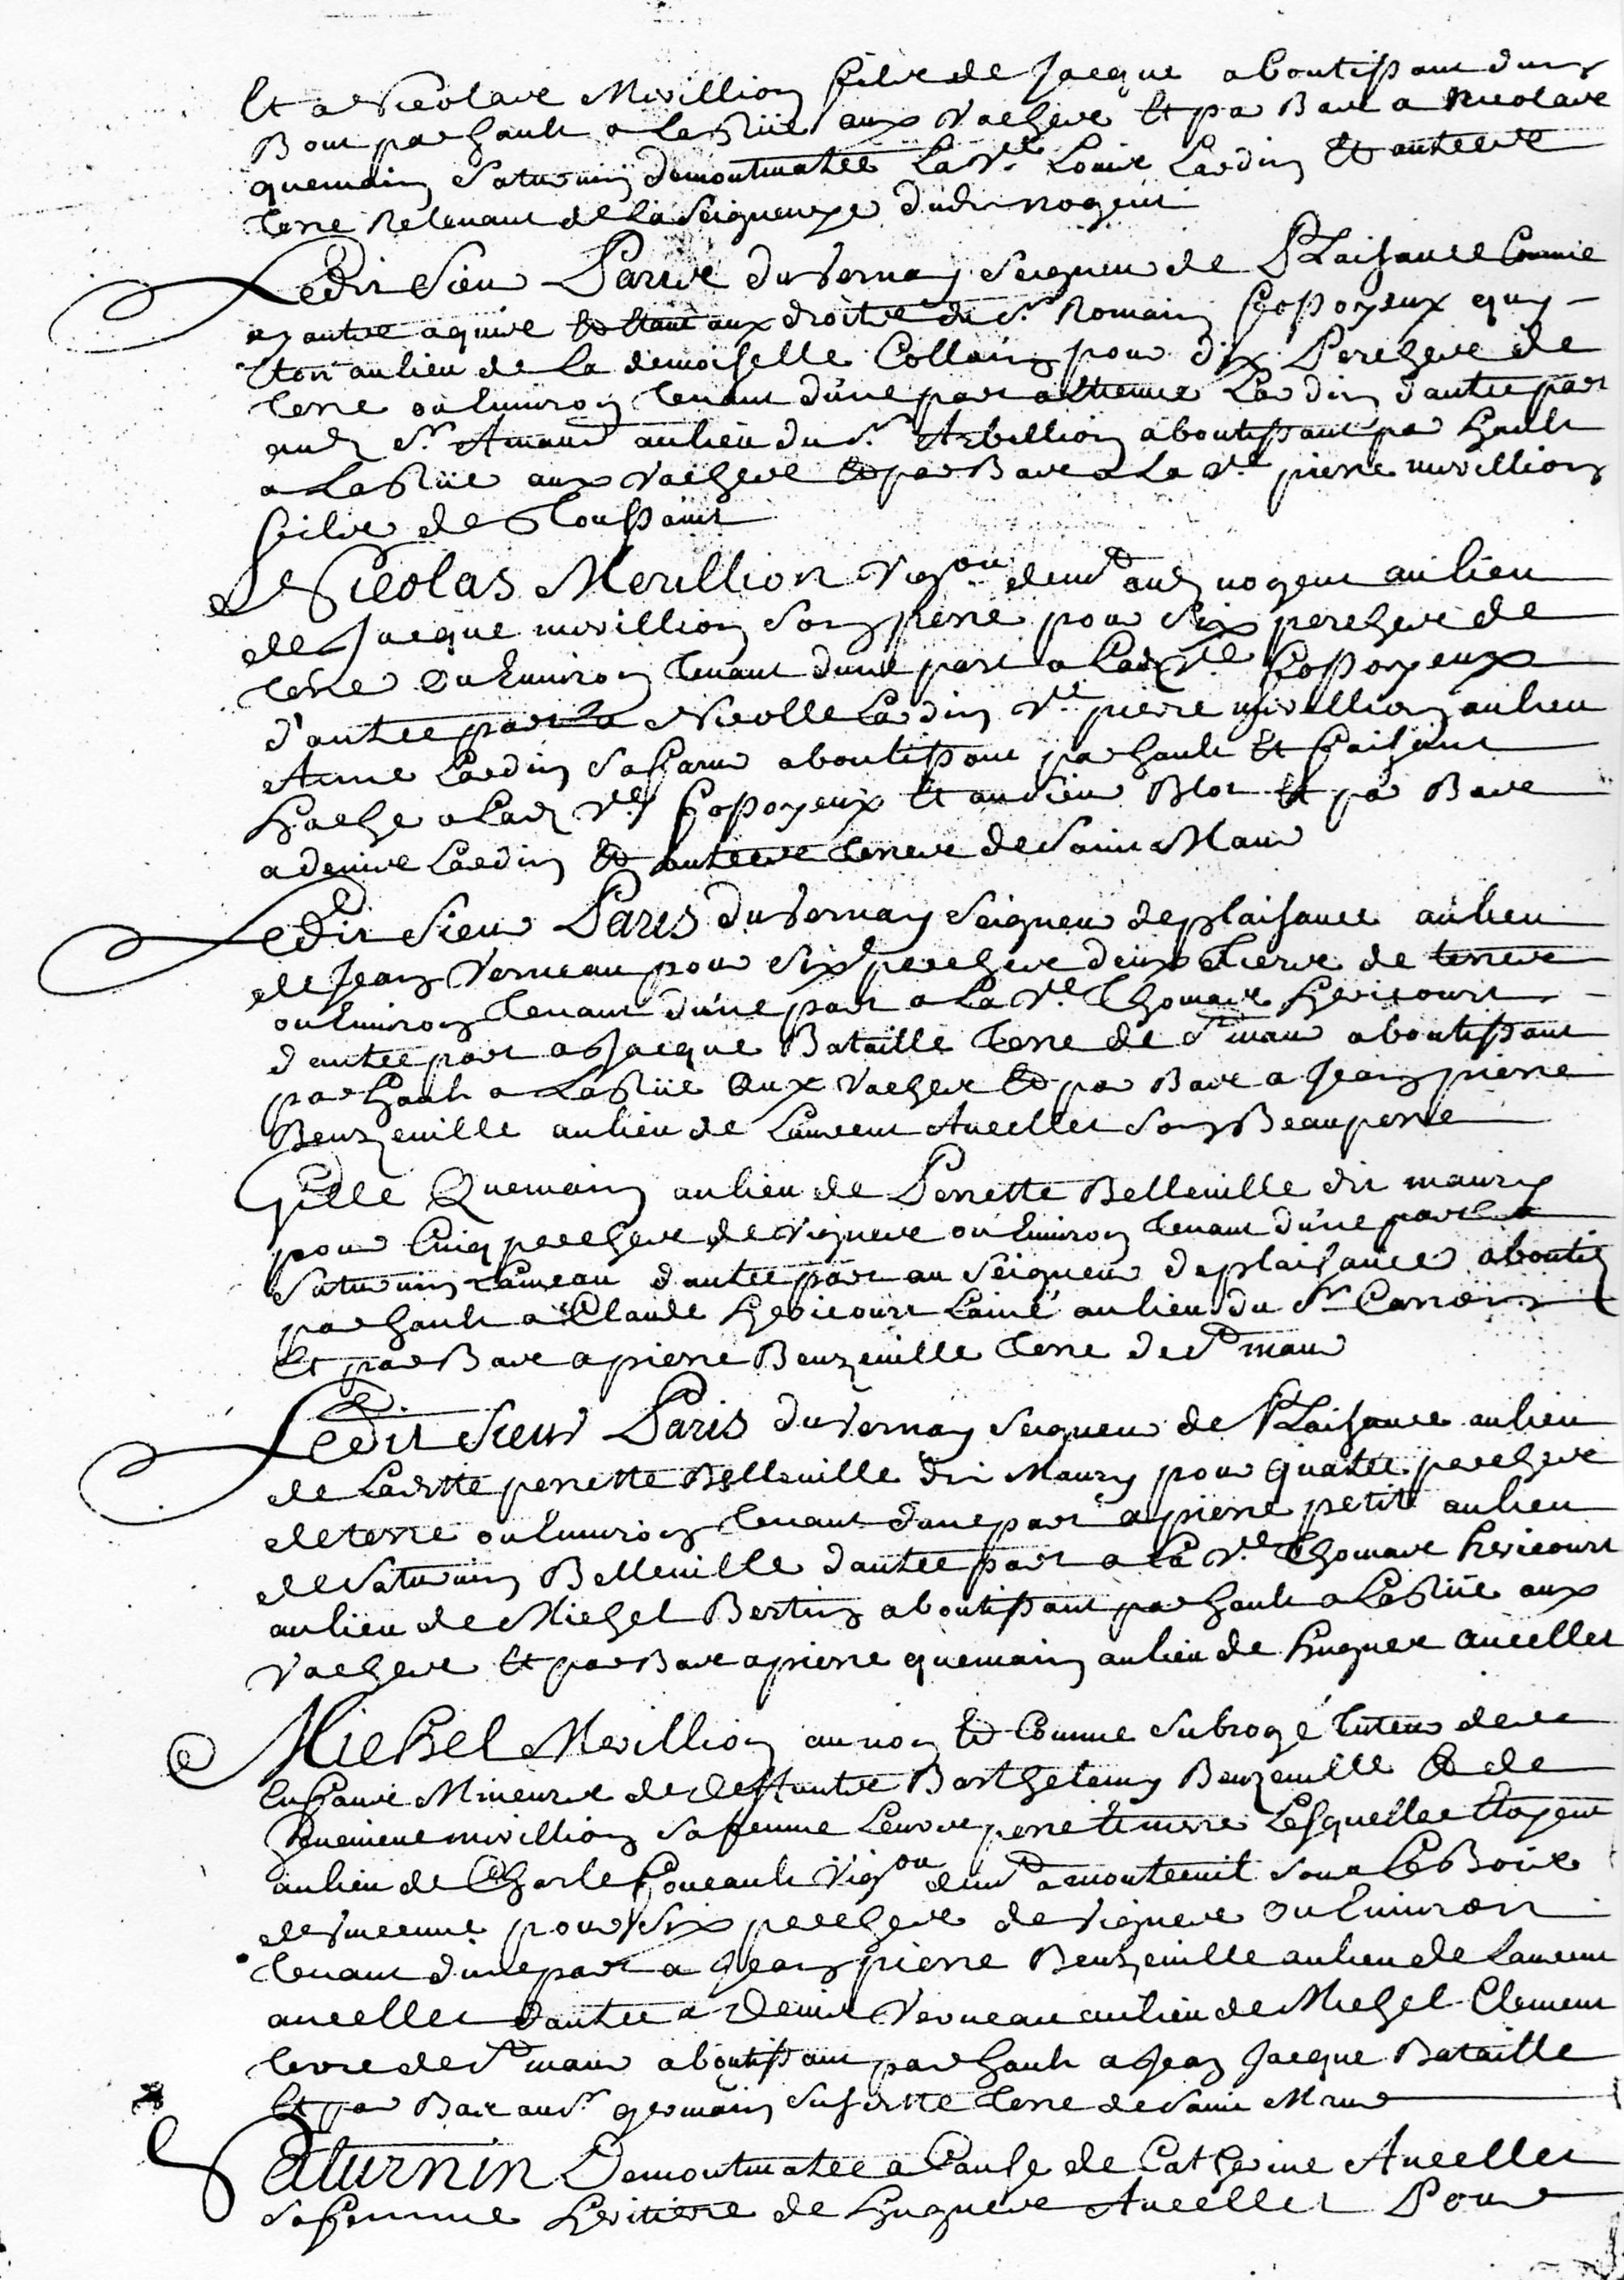 Et a Nicolas Merillion fils de Jacque aboutissant dun
Bout par hault a La Rüe aux Vaches Et par Bas a Nicolas
quemain Saturnin demontmatre La Ve. Louis Lardin Et autres
terre Relevant de La Seigneurye dudit nogent
Ledit Sieur Paris du Vernay Seigneur de PLaisance Comme
ayantre aquise Et Etant aux droits du Sr. Romain
Etoit au lieu de La demoiselle Collain pour dix Perches de
terre ou Environ tenant d'une part a Etienne Lardin dautre part
aud Sr. Amand au lieu du Sr. Arbillion aboutissant par hault
a La Rüe aux Vaches Et par Bas a La Ve. pierre merillion
fils de Toussaint
Nicolas Merillion Vigon demt aud nogent au lieu
de Jacque merillion Son perre pour Six perches de
terre ou Environ tenant dune part a Lad Ve.
d'autre part a Nicolle Lardin Ve. pierre merillion au lieu
Anne Lardin Sa aboutissant par hault Et faisant
hache a Lad Ve. Et au Sieur Blot Et par Bas
a denis Lardin Et autres terres de Saint Maur
Ledit Sieur Paris du Vernay Seigneur de plaisance au lieu
de Jean Verneau pour Six perches deux tiers de terres
ou Environ tenant d'une part a La Ve. Thomas hericourt
dautre part a Jacque Bataille terre de St maur aboutissant
par hault a La Rüe aux Vaches Et par Bas a Jean pierre
Beuzeuille au lieu de Laurent Ancellet Son Beauperre
Gille Quemain au lieu de Perrette Belleuille dit maury
pour Cinq perches de Vignes ou Environ tenant d'une part a
Saturnin Lameau dautre part au Seigneur de plaisance aboutis
par hault a Claude hericourt Lainé au lieu du Sr
Et par Bas a pierre Beuzeuille terre de St maur
Ledit Sieur Paris du Vernay Seigneur de PLaisance au lieu
de Laditte perrette Belleuille dit Maury pour quatre perches
de terre ou Environ tenant dune part a pierre petit au lieu
de Saturnin Belleuille dautre part a La Ve. Thomas hericourt
au lieu de Michel Bertin aboutissant par hault a La Rüe aux
Vaches Et par Bas a pierre quemain au lieu de hugues ancellet
Michel Merillion au nom Et Comme Subrogé tuteur des
Enfans Mineurs de deffuntre Barthelemy Beuzeuille Et de
Geneuieue merillion Sa femme Leurs perre Et merre Lesquelles Etoyent
au lieu de Charle foucault Vigon demt a montreuil Sous Le Bois
de Vincenne pour Six perches de Vignes ou Environ
tenant d'une part a Jean pierre Beuzeuille au lieu de Laurent
ancellet dautre a Denis Verneau au lieu de Michel Clement
terre de St maur aboutissant par hault a Jean Jacque Bataille
Et par Bas au Sr. germain terre de Saint Maur
Saturnin Demontmatre a Cause de Catherine Ancellet
Sa femme heritiere de hugues Ancellet Pour